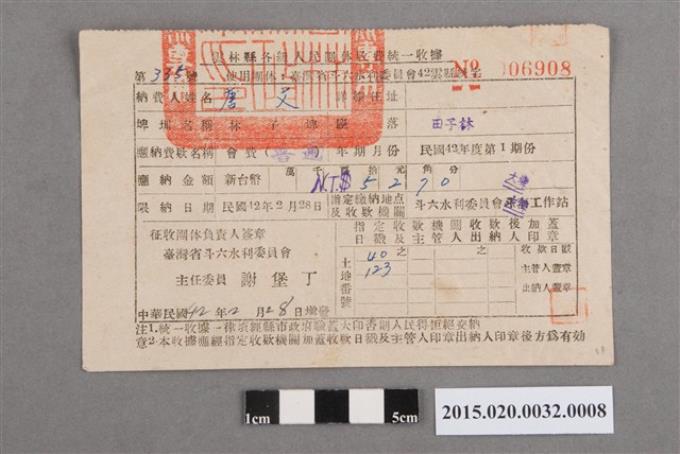 雲林縣各種人民團體收費統一收據
第335號 使用團体:臺灣省斗六水利委員會42雲縣 № 006908
納費人姓名 唐 文 詳細住址
埤圳名稱 林子埤 段落 田子林
應納費款名稱 會費(普通 年期月份 民國42年度第1期份
應納金額 新台幣 萬千百拾元角分 N.T.$ 5270
限納日期 民國42年2月28日 指定繳納地点及收款機關 斗六水利委員會 工作站
征收團体負責人簽章
臺灣省斗六水利委員會
主任委員 謝堡丁
中華民國42年2月28日填發
指定收款機關收款後加蓋
日戳及主管人出納人印章
土地番號 40之 123 之 收款日戳
主管人蓋章
出納人蓋章
注1.統一收據一律須經縣市政府驗蓋大印否則人民得拒絕交納
意2.本收據應經指定收款機關加蓋收款日戳及主管人印章出納人印章後方為有効
1cm 5cm
2015.020.0032.0008